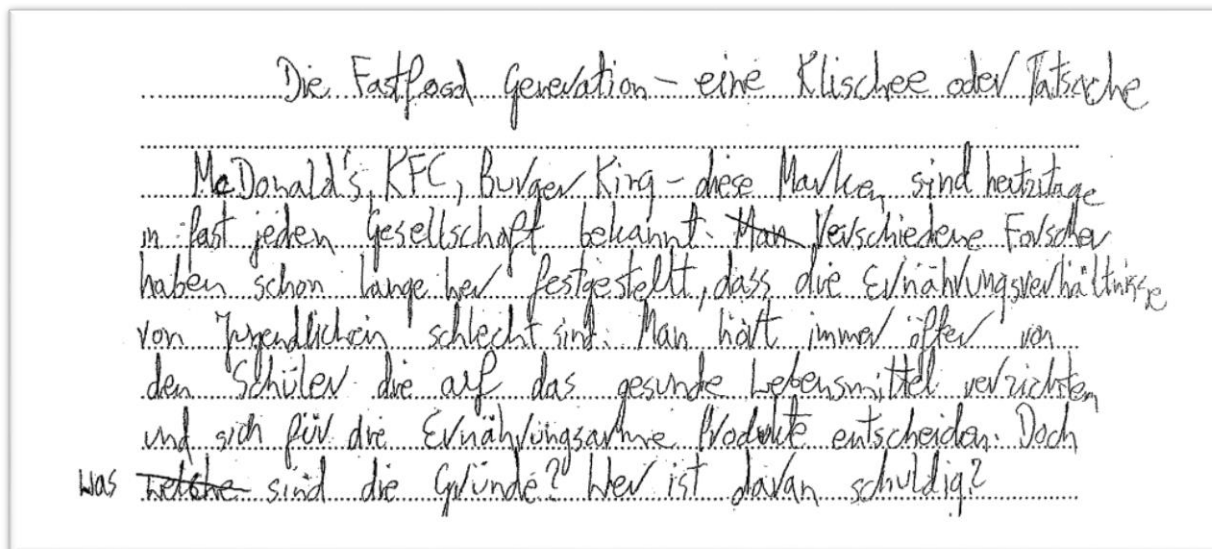 Die Fastfood Generation – eine Klischee oder Tatsache
McDonald's, KFC, Burger King – diese Marken sind heutzutage
in fast jeden Gesellschaft bekannt. Man Verschiedene Forscher
haben schon lange her festgestellt, dass die Ernährungsverhältnisse
von Jugendlichein schlecht sind. Man hört immer öfter von
den Schüler die auf das gesunde Lebensmittel verzichten
und sich für die Ernährungsarme Produkte entscheiden. Doch
was welche sind die Gründe? Wer ist daran schuldig?